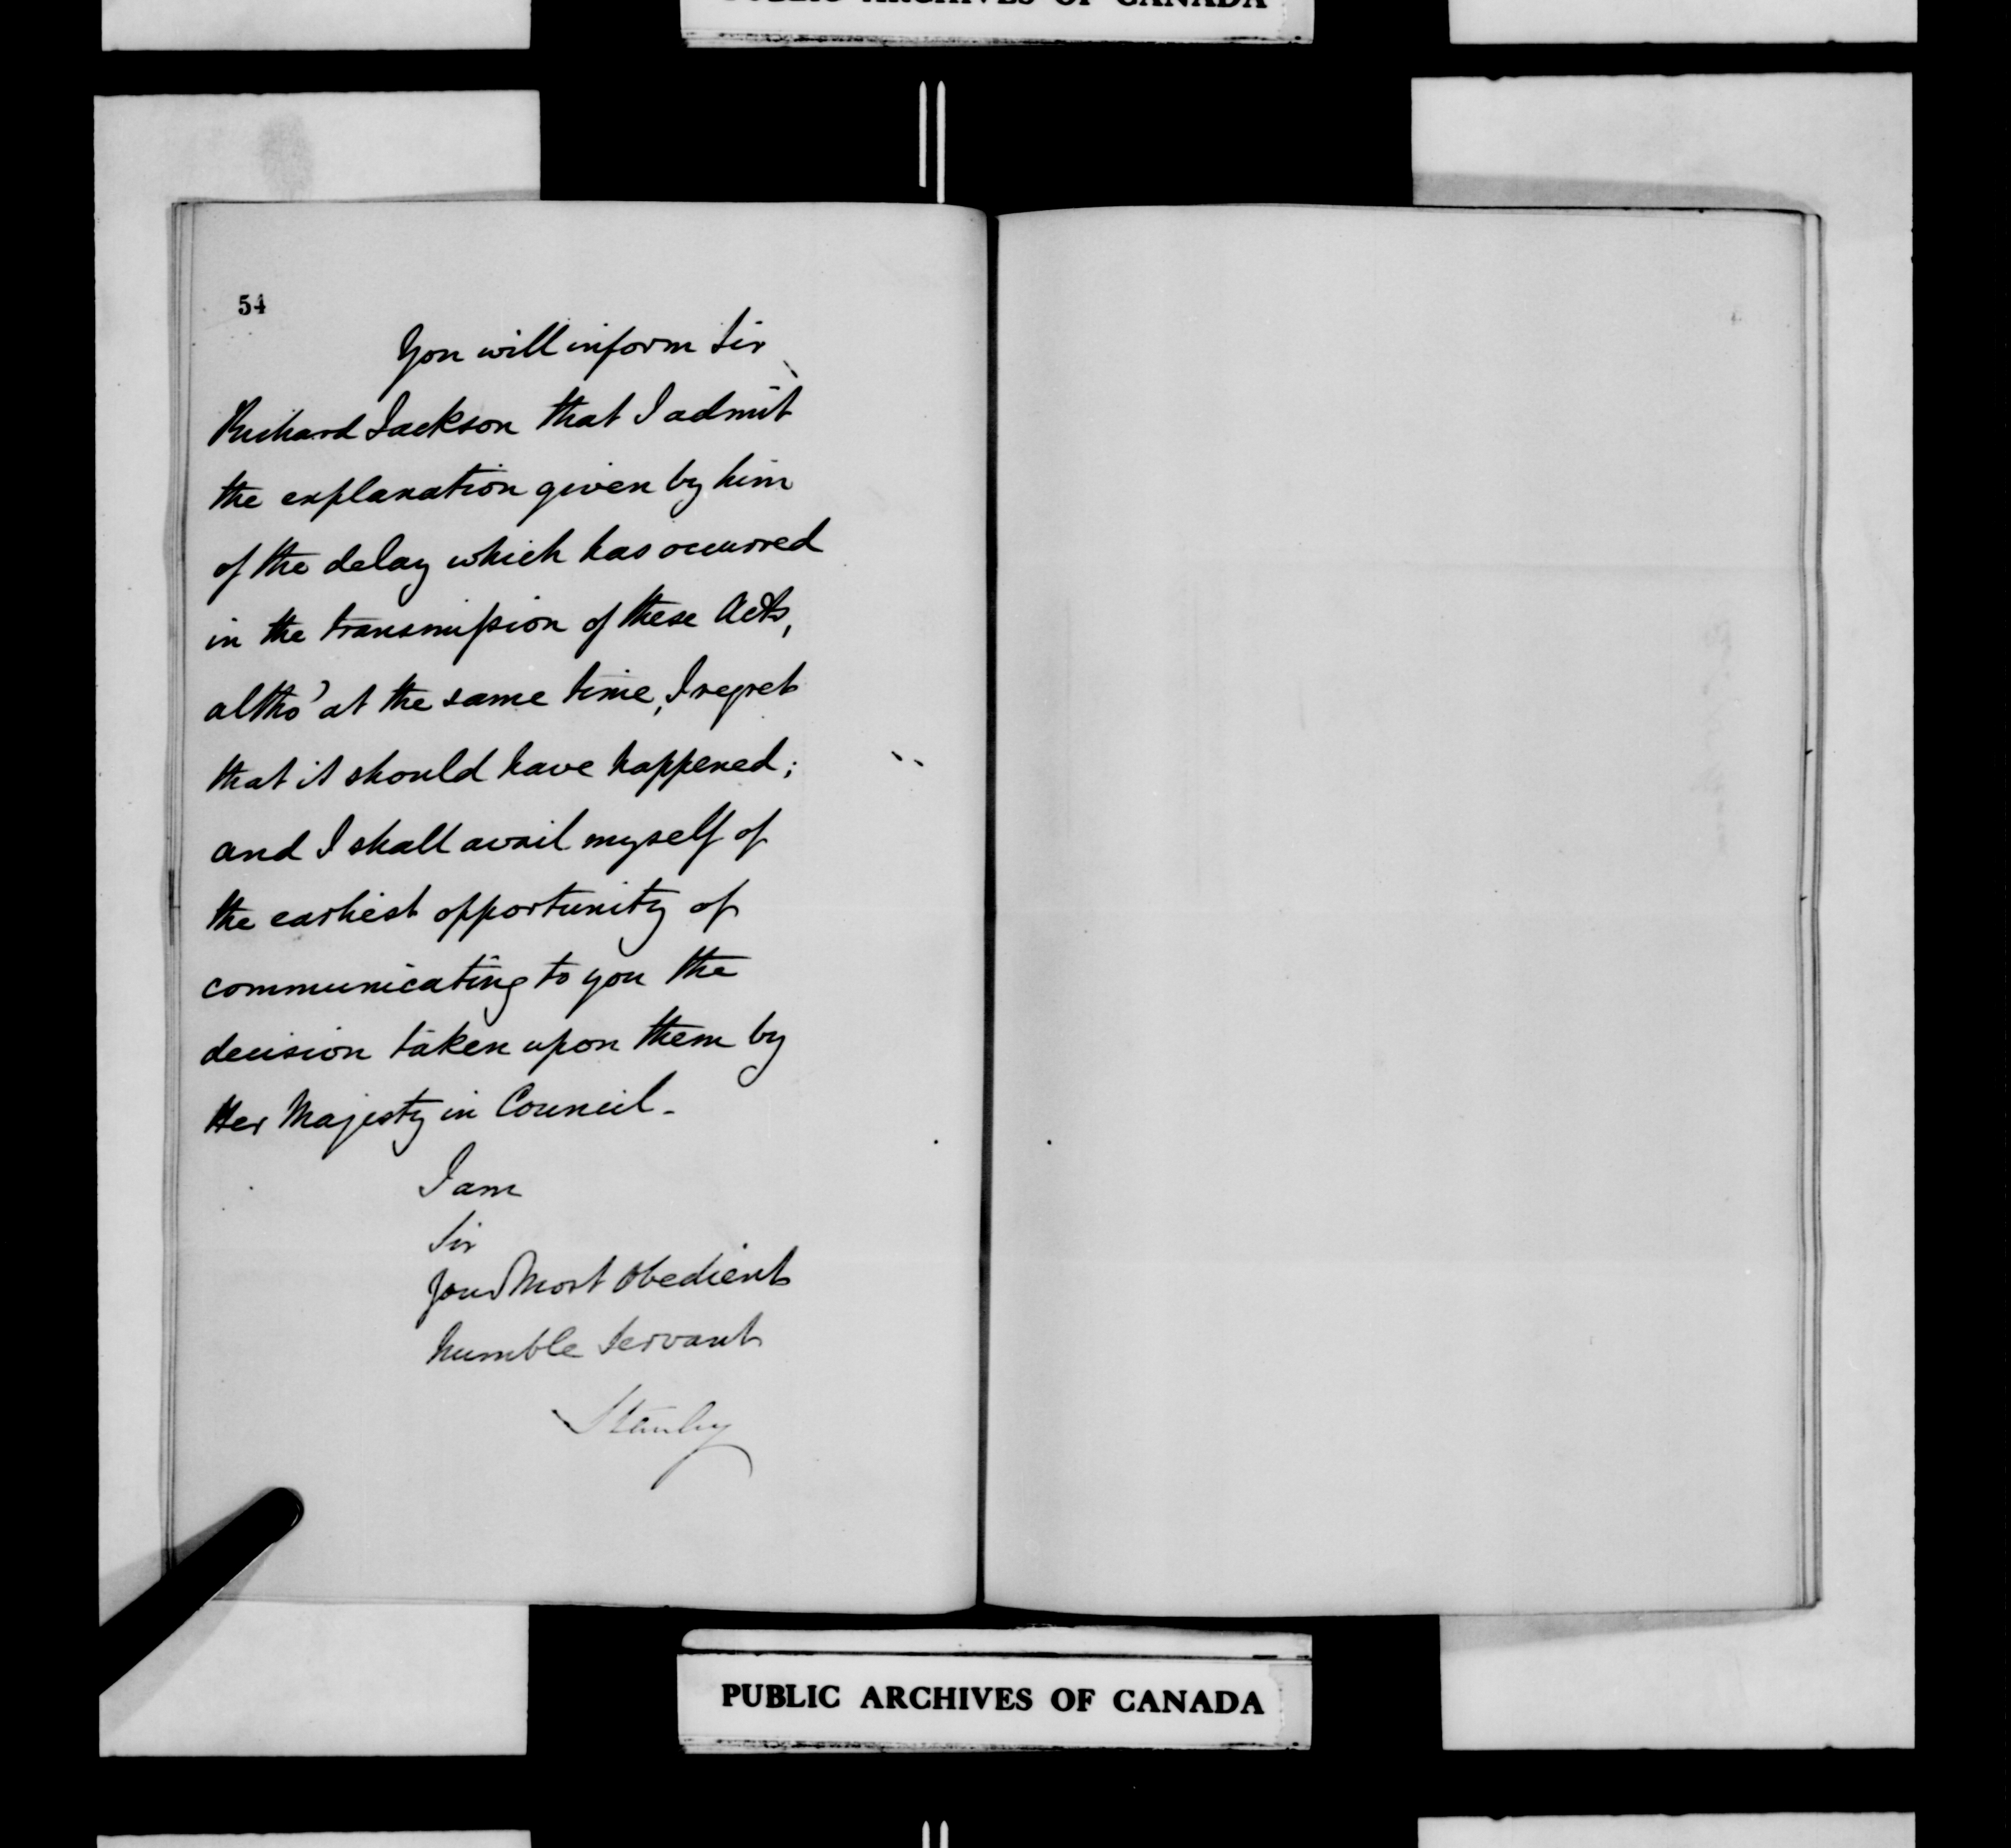 PUBLIC ARCHIVES OF CANADA
54
You will inform Sir
Richard Jackson that I admit
the explanation given by him
of the delay which has occurred
in the transmission of these Acts,
altho' at the same time, I regret
that it should have happened;
and I shall avail myself of
the earliest opportunity of
communicating to you the
decision taken upon them by
Her Majesty in Council.
I am
Sir
Your Most Obedient
humble Servant
Stanley
PUBLIC ARCHIVES OF CANADA